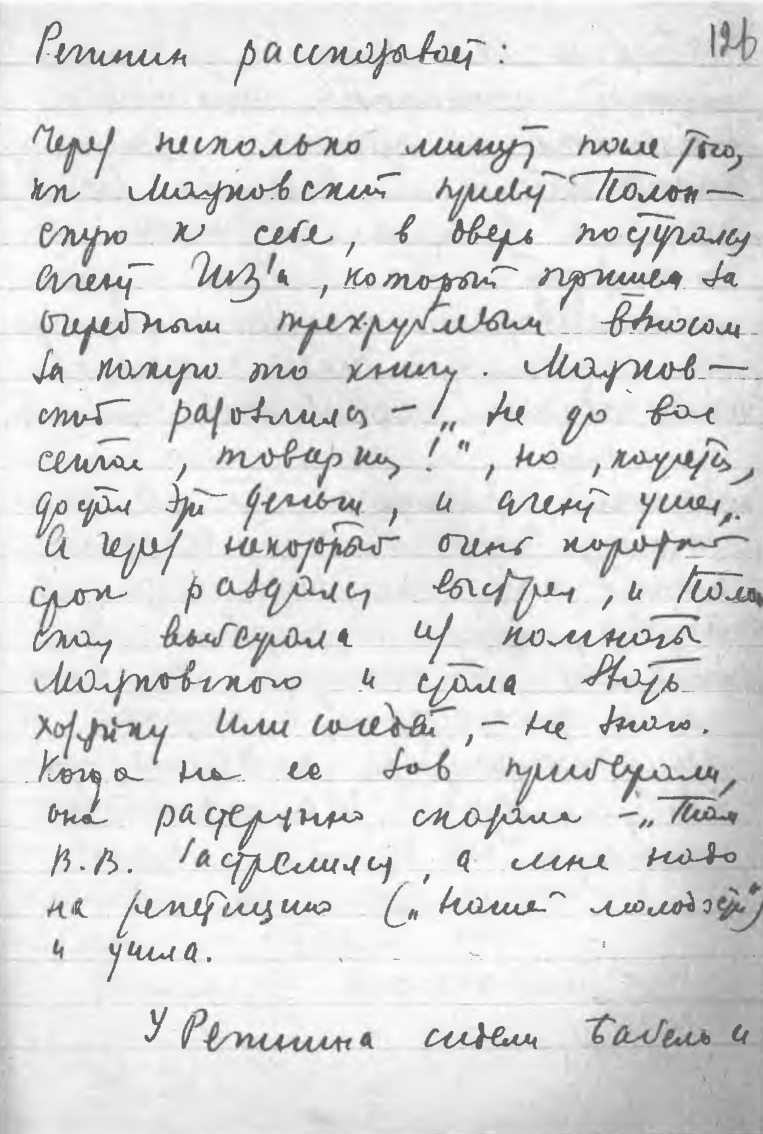 126
Регинин рассказывает:
Через несколько минут после того,
как Маяковский привел Полон-
скую к себе, в дверь постучался
агент Гиз'а, который пришел за
очередным трехрублевым взносом
за какую то книгу. Маяков-
ский разозлился - „Не до вас
сейчас, товарищ!", но, кажется,
достал эти деньги, и агент ушел.
А через некоторый очень короткий
срок раздался выстрел, и Полон
ская выбежала из комнаты
Маяковского и стала звать
хозяйку или соседей, - не знаю.
Когда на ее зов прибежали,
она растерянно сказала - „Там
В.В. застрелился, а мне надо
на репетицию („Нашей молодости")
и ушла.
У Регинина сидели Бабель и